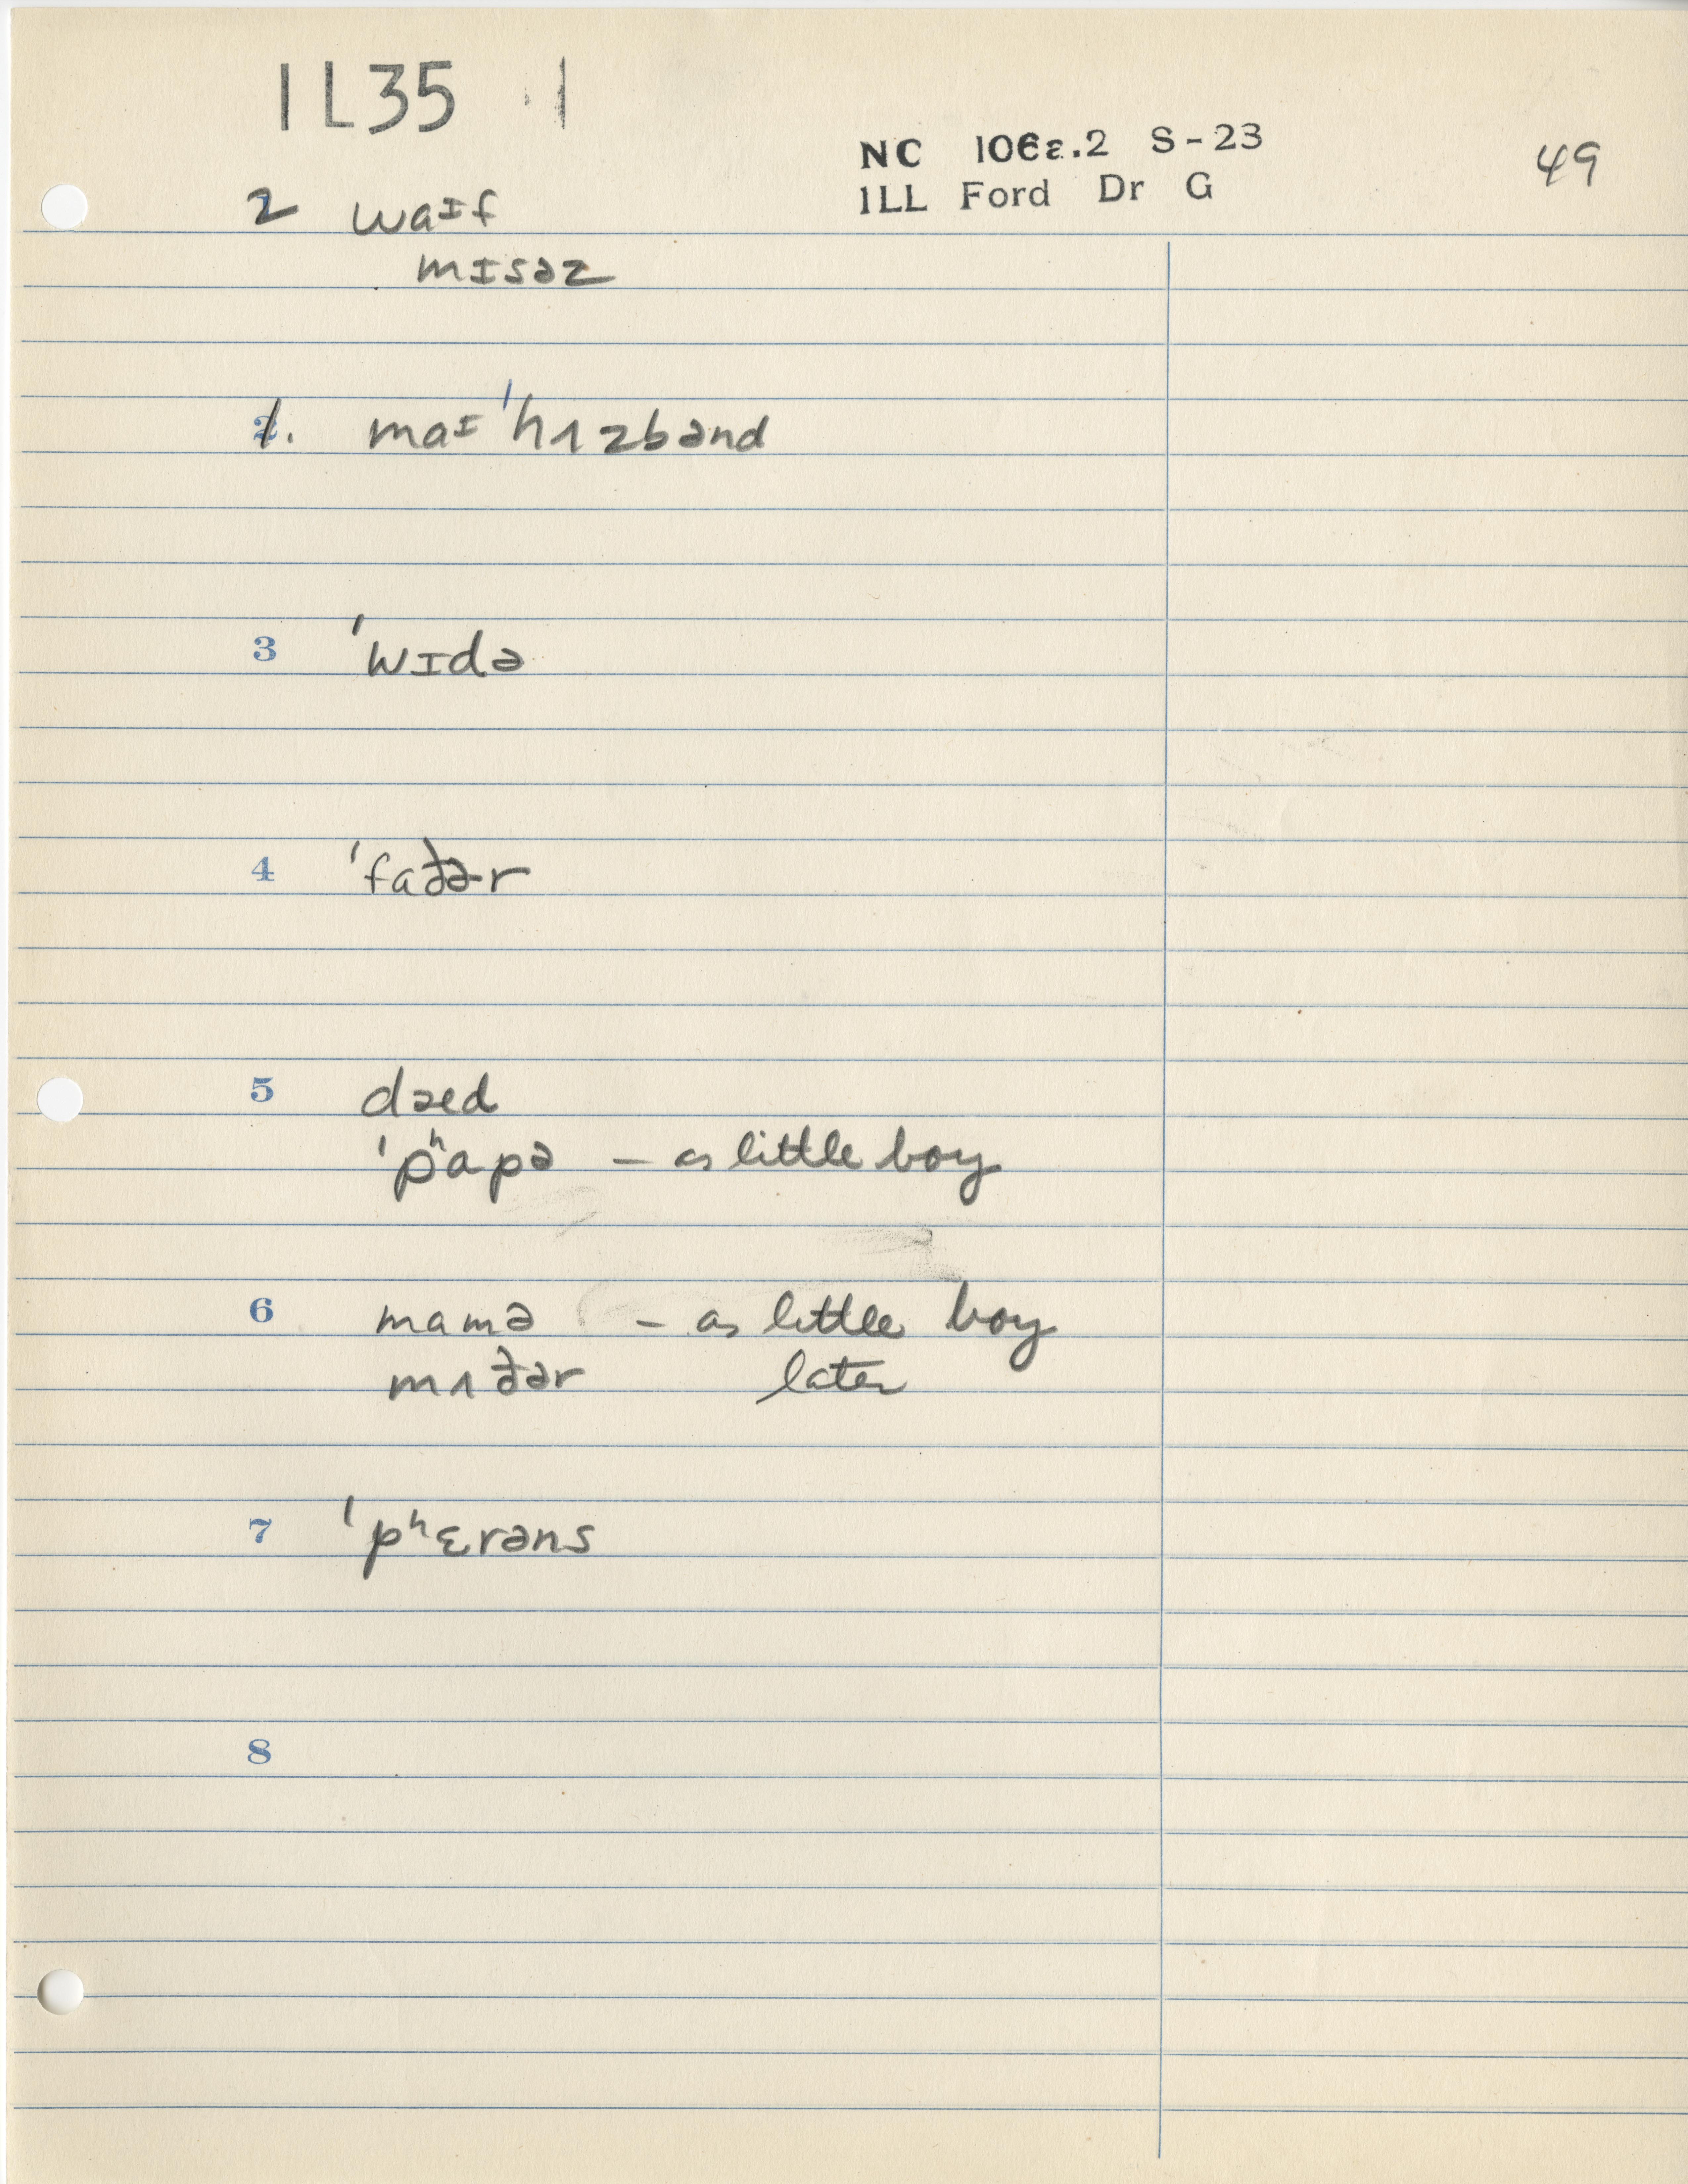 IL35 1
NC 106ε.2 S-23
ILL Ford Dr G
49
2 waɪf
mɪsəz
1. maɪ 'hʌzbənd
3 'wɪdə
4 'faðər
5 dæd
'pʰapə – as little boy
6 mamə – as little boy
mʌðər later
7 'pʰɛrəns
8